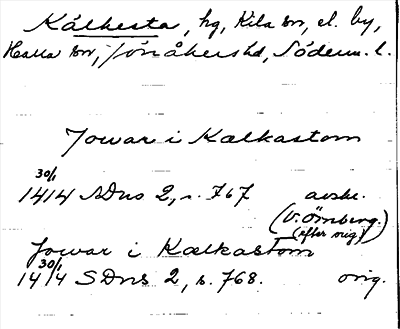 Kälkesta, hg, Kila sn, el. by,
Halla sn, Jönåkers hd, Söderm. l.
Jowar i Kælkastom
30/1
1414 SDns 2, s. 767 avskr.
(V. Örnberg.
(efter mig))
Jowar i Kælkastom
30/1
1414 SDns 2, s. 768. orig.